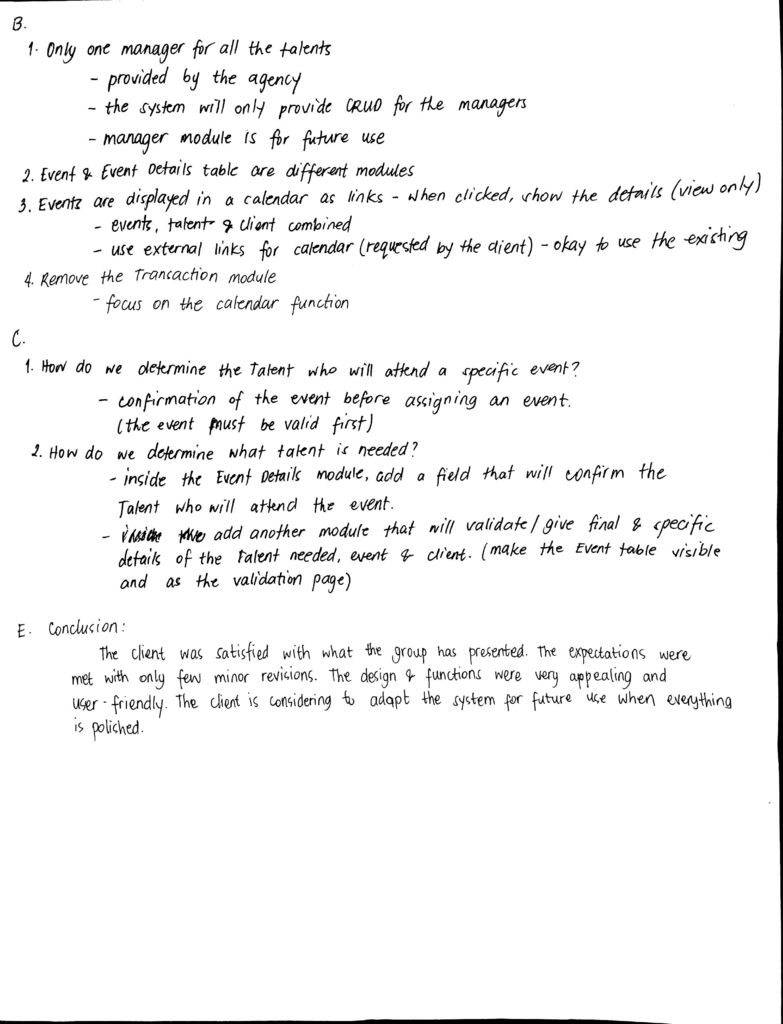 B.
1. Only one manager for all the talents
- provided by the agency
- the system will only provide CRUD for the managers
- manager module is for future use
2. Event & Event Details table are different modules
3. Events are displayed in a calendar as links - when clicked, show the details (view only)
- events, talent & client combined
- use external links for calendar (requested by the client) - okay to use the existing
4. Remove the Transaction module
- focus on the calendar function
C.
1. How do we determine the Talent who will attend a specific event?
- confirmation of the event before assigning an event.
(the event must be valid first)
2. How do we determine what talent is needed?
- inside the Event Details module, add a field that will confirm the
Talent who will attend the event.
- add another module that will validate / give final & specific
details of the talent needed, event & client. (make the Event table visible
and as the validation page)
E. Conclusion:
The client was satisfied with what the group has presented. The expectations were
met with only few minor revisions. The design & functions were very appealing and
user-friendly. The client is considering to adapt the system for future use when everything
is polished.